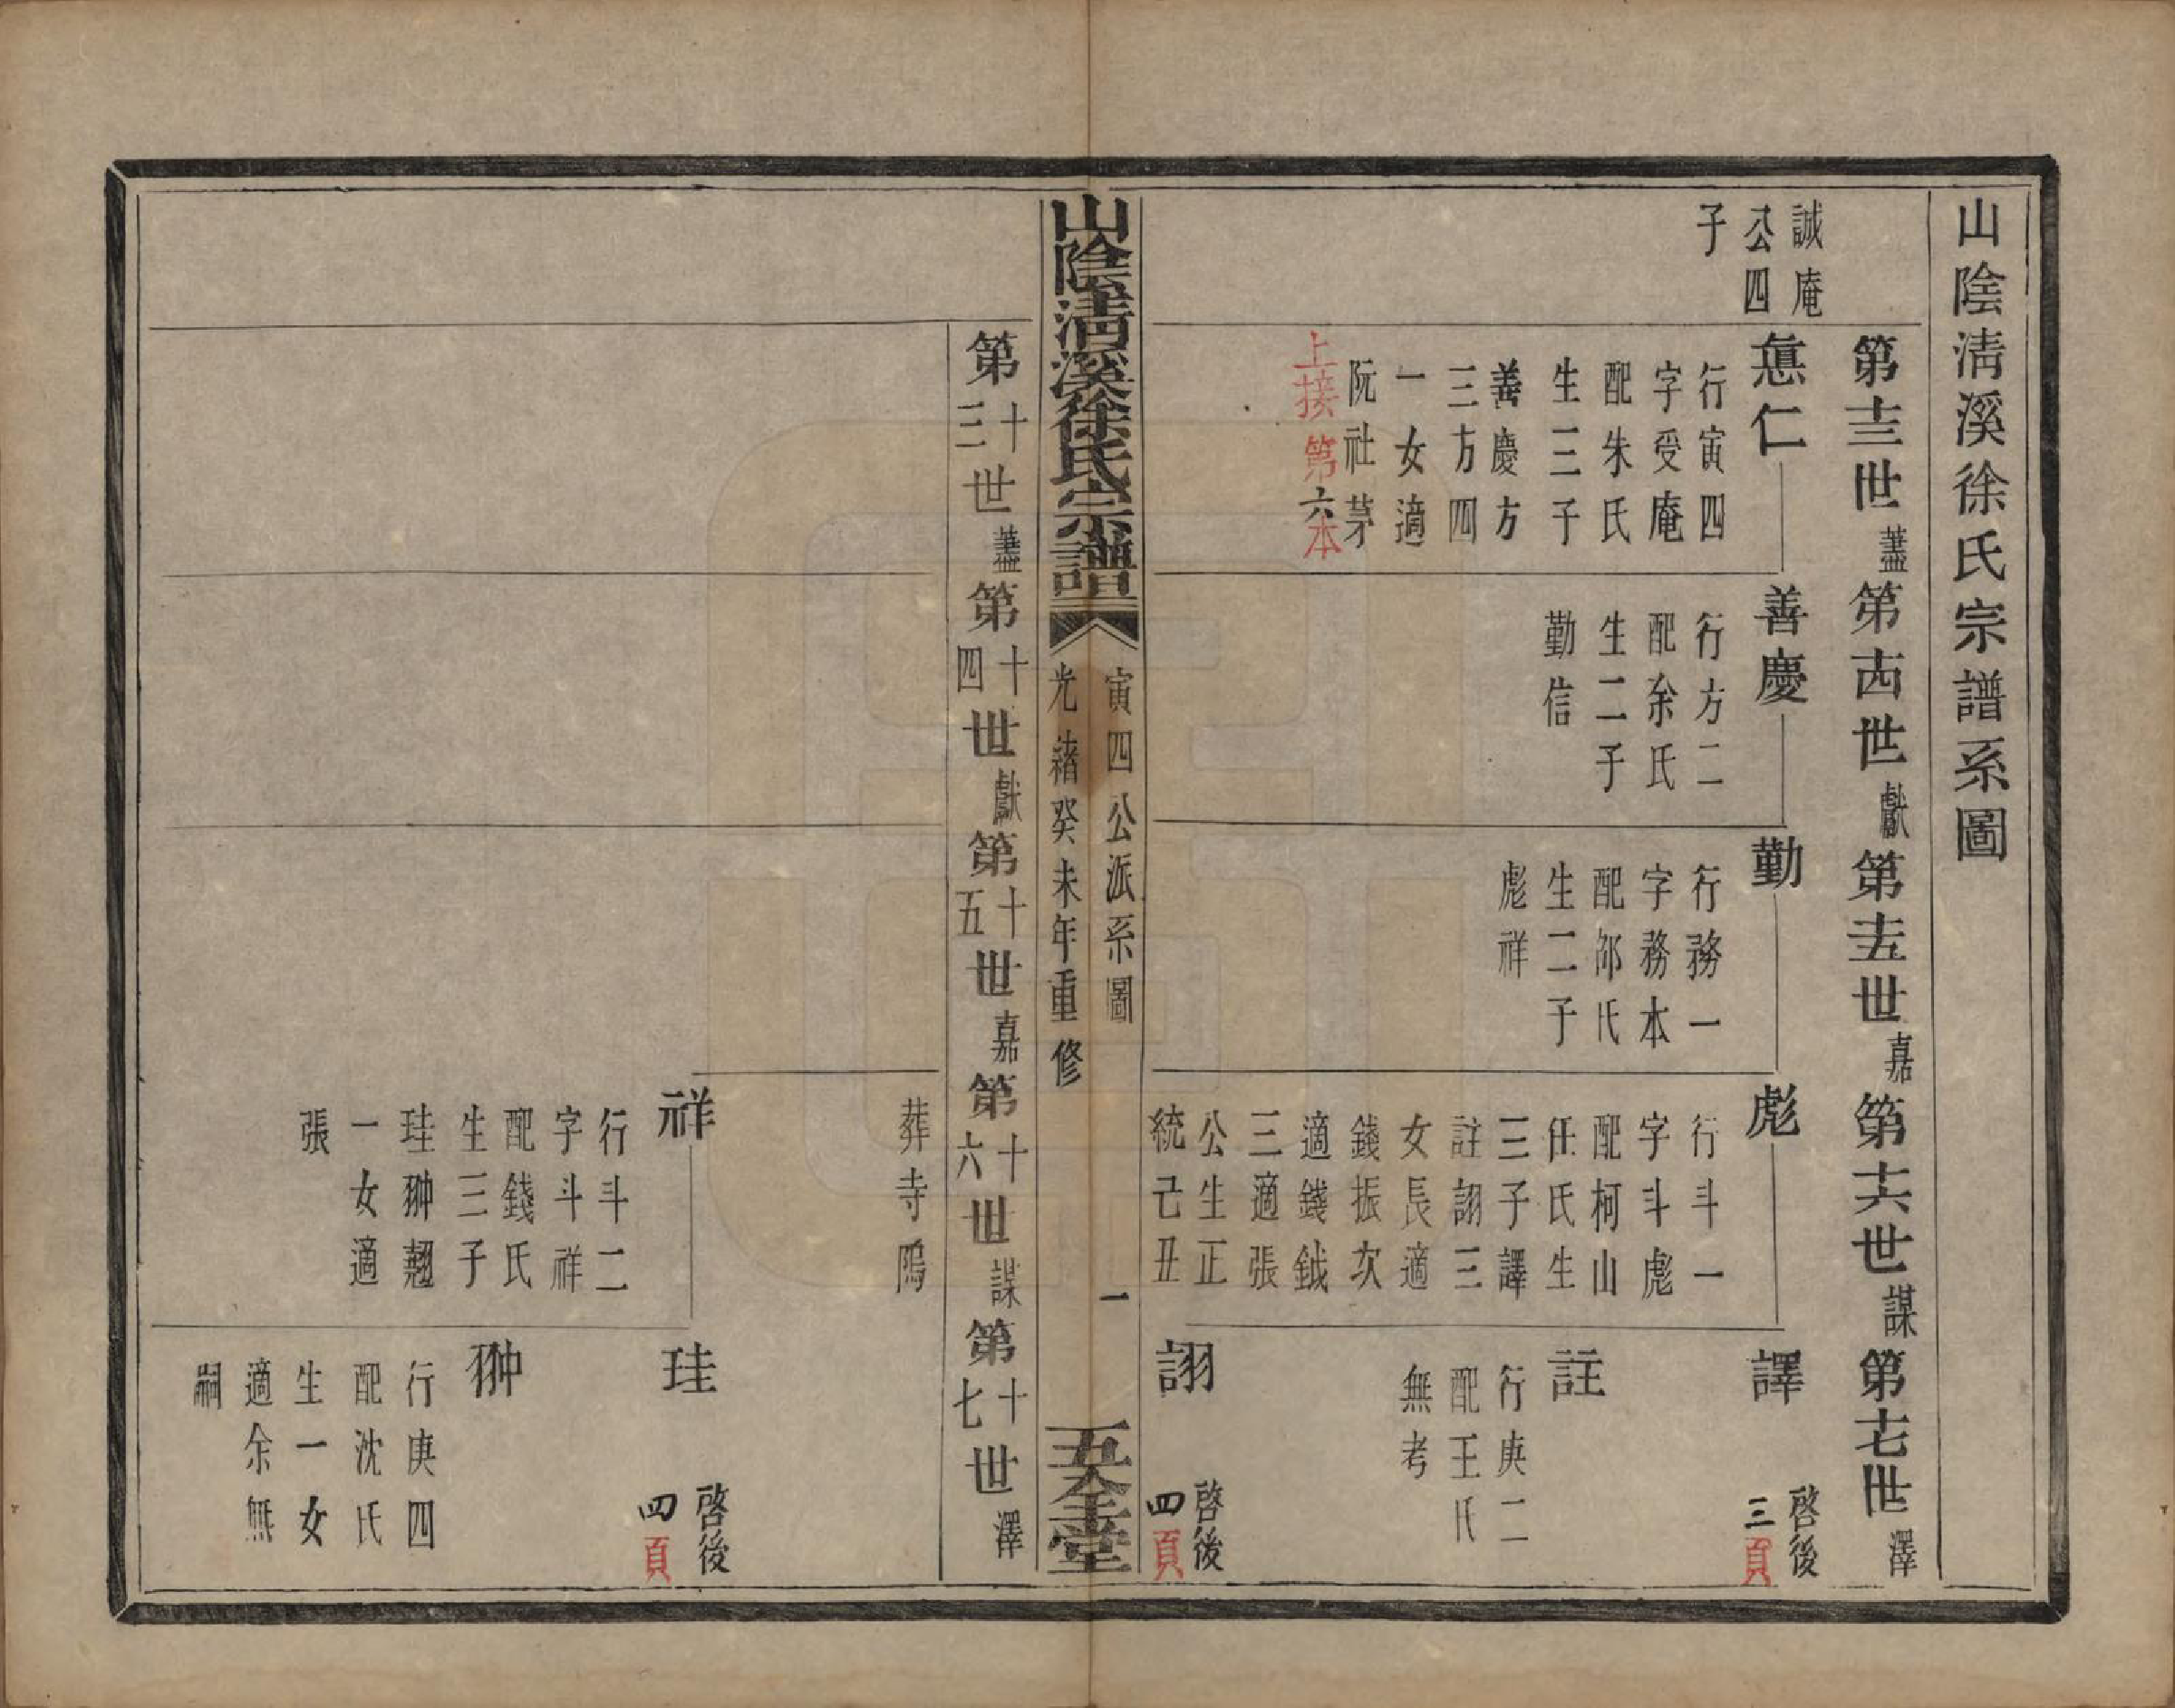 山陰清溪徐氏宗譜系圖
第十三世藎
第十四世獻
第十五世嘉
第十六世謀
第十七世澤
誠庵
公四
子
惪仁
行寅四
字受庵
配朱氏
生三子
善慶方
三方四
一女適
阮社茅
上接第六本
善慶
行方二
配余氏
生二子
勤信
勤
行務一
字務本
配邵氏
生二子
彪祥
彪
行斗一
字斗彪
配柯山
任氏生
三子譯
註詡三
女長適
錢振次
適錢鉞
三適張
公生正
統己丑
譯
啓後
三頁
註
行庚二
配王氏
無考
詡
啓後
四頁
山陰清溪徐氏宗譜
寅四公派系圖
光緒癸未年重修
一
五全堂
第十三世藎
第十四世獻
第十五世嘉
第十六世謀
第十七世澤
葬寺隖
祥
行斗二
字斗祥
配錢氏
生三子
珪翀翹
一女適
張
珪
啓後
四頁
翀
行庚四
配沈氏
生一女
適余無
嗣